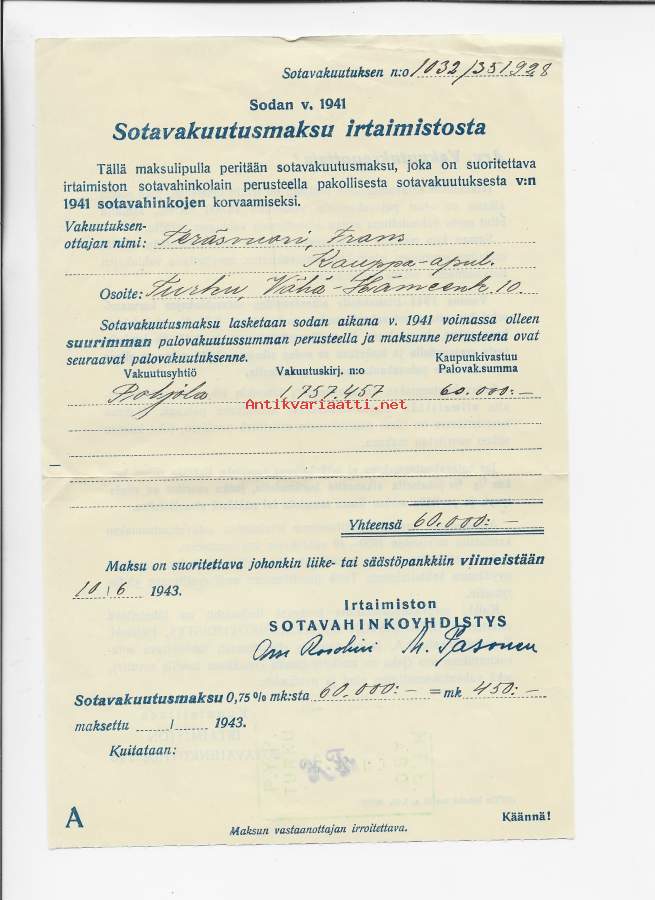 Sotavakuutuksen n:o 1032/351928
Sodan v. 1941
Sotavakuutusmaksu irtaimistosta
Tällä maksulipulla peritään sotavakuutusmaksu, joka on suoritettava
irtaimiston sotavahinkolain perusteella pakollisesta sotavakuutuksesta v:n
1941 sotavahinkojen korvaamiseksi.
Vakuutuksen-
ottajan nimi: Teräsvuori, Frans
Kauppa-apul.
Osoite: Turku, Vähä-Hämeenk. 10.
Sotavakuutusmaksu lasketaan sodan aikana v. 1941 voimassa olleen
suurimman palovakuutussumman perusteella ja maksunne perusteena ovat
seuraavat palovakuutuksenne.
Vakuutusyhtiö Vakuutuskirj. n:o Kaupunkivastuu Palovak.summa
Pohjola 1.757.457 60.000:-
Antikvariaatti.net
Yhteensä 60.000:-
Maksu on suoritettava johonkin liike- tai säästöpankkiin viimeistään
10/6 1943.
Irtaimiston
SOTAVAHINKOYHDISTYS
M. Pasonen
Sotavakuutusmaksu 0,75 % mk:sta 60.000:- = mk 450:-
maksettu / 1943.
Kuitataan:
A
Maksun vastaanottajan irroitettava.
Käännä!